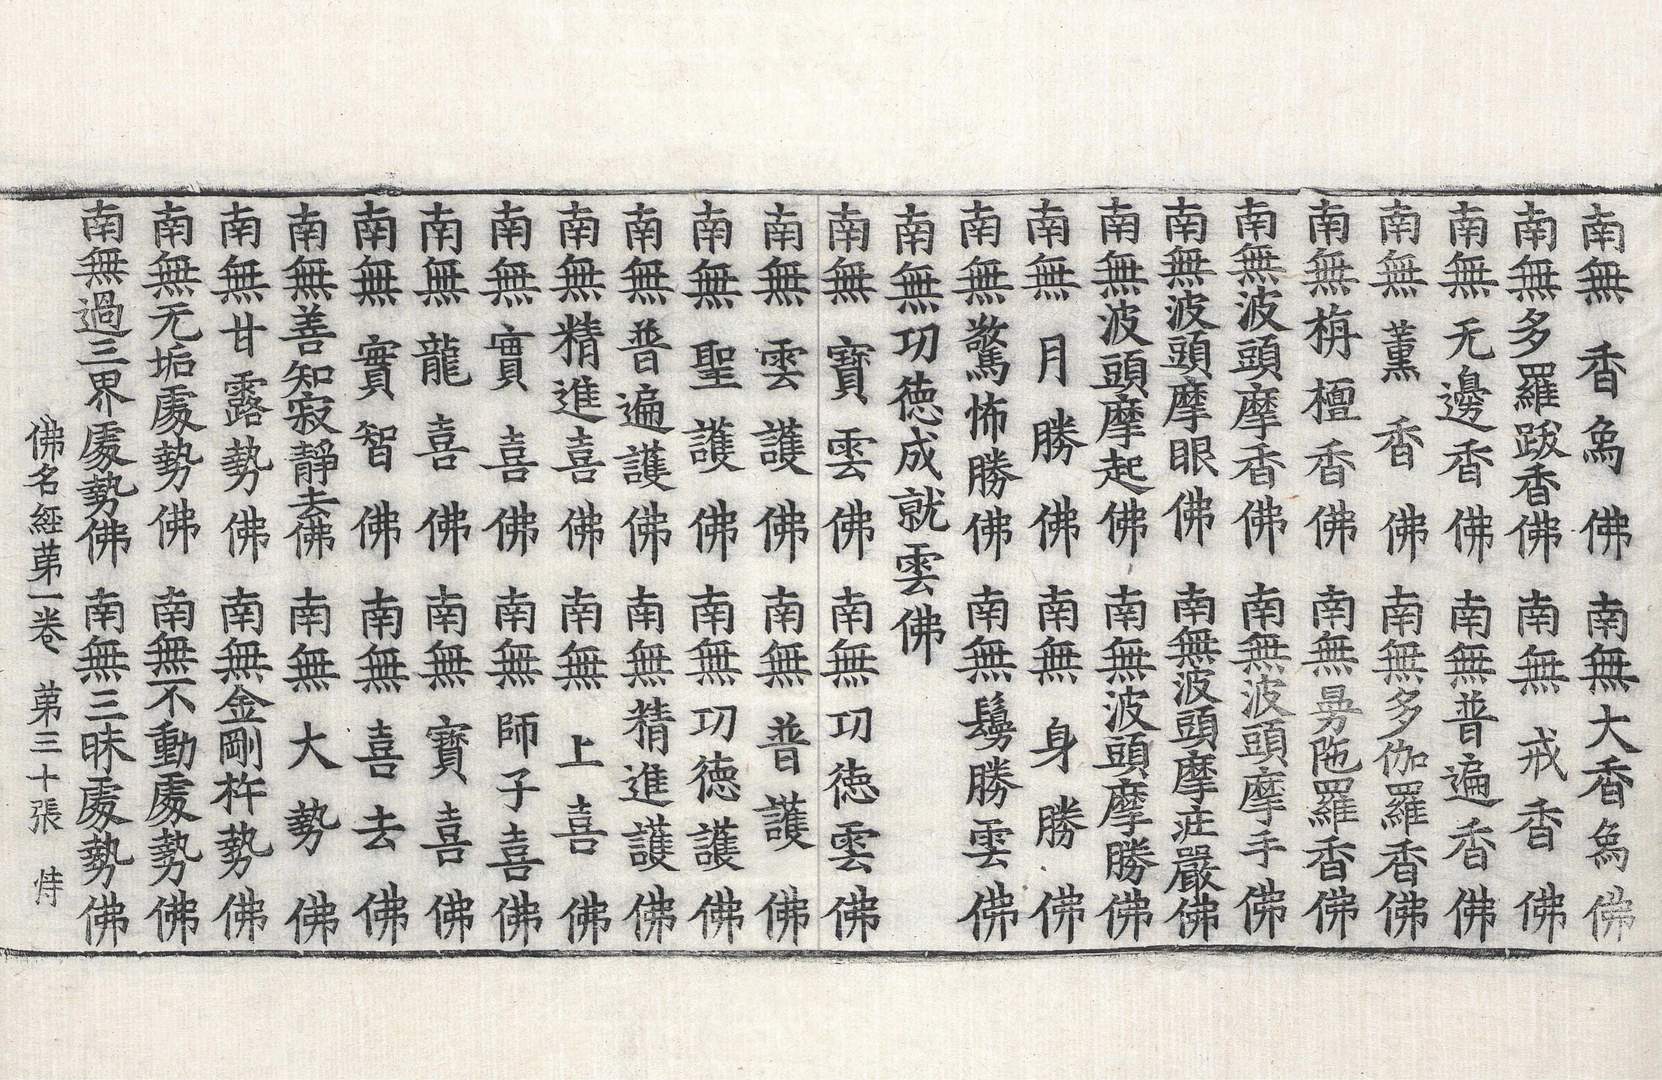 南無香象佛 南無大香象佛
南無多羅跋香佛 南無戒香佛
南無无邊香佛 南無普遍香佛
南無薰香佛 南無多伽羅香佛
南無栴檀香佛 南無曼陁羅香佛
南無波頭摩香佛 南無波頭摩手佛
南無波頭摩眼佛 南無波頭摩庄嚴佛
南無波頭摩起佛 南無波頭摩勝佛
南無月勝佛 南無身勝佛
南無驚怖勝佛 南無鬘勝雲佛
南無功德成就雲佛
南無寶雲佛 南無功德雲佛
南無雲護佛 南無普護佛
南無聖護佛 南無功德護佛
南無普遍護佛 南無精進護佛
南無精進喜佛 南無上喜佛
南無實喜佛 南無師子喜佛
南無龍喜佛 南無寶喜佛
南無實智佛 南無喜去佛
南無善知寂靜去佛 南無大勢佛
南無甘露勢佛 南無金剛杵勢佛
南無无垢處勢佛 南無不動處勢佛
南無過三界處勢佛 南無三昧處勢佛
佛名經苐一卷 苐三十張 恃